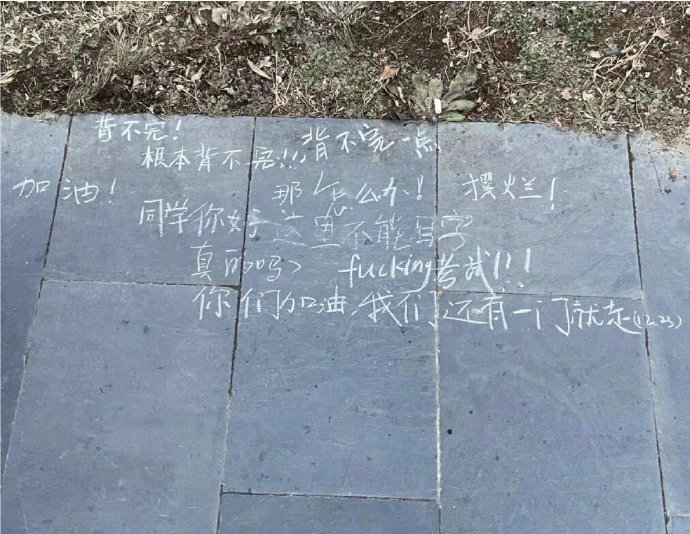 背不完！
根本背不完！！！ 背不完一点
加油！ 那怎么办！ 摆烂！
同学你好 这里不能写字
真的吗？ fucking考试！！！
你们加油，我们还有一门就走 (12.23)